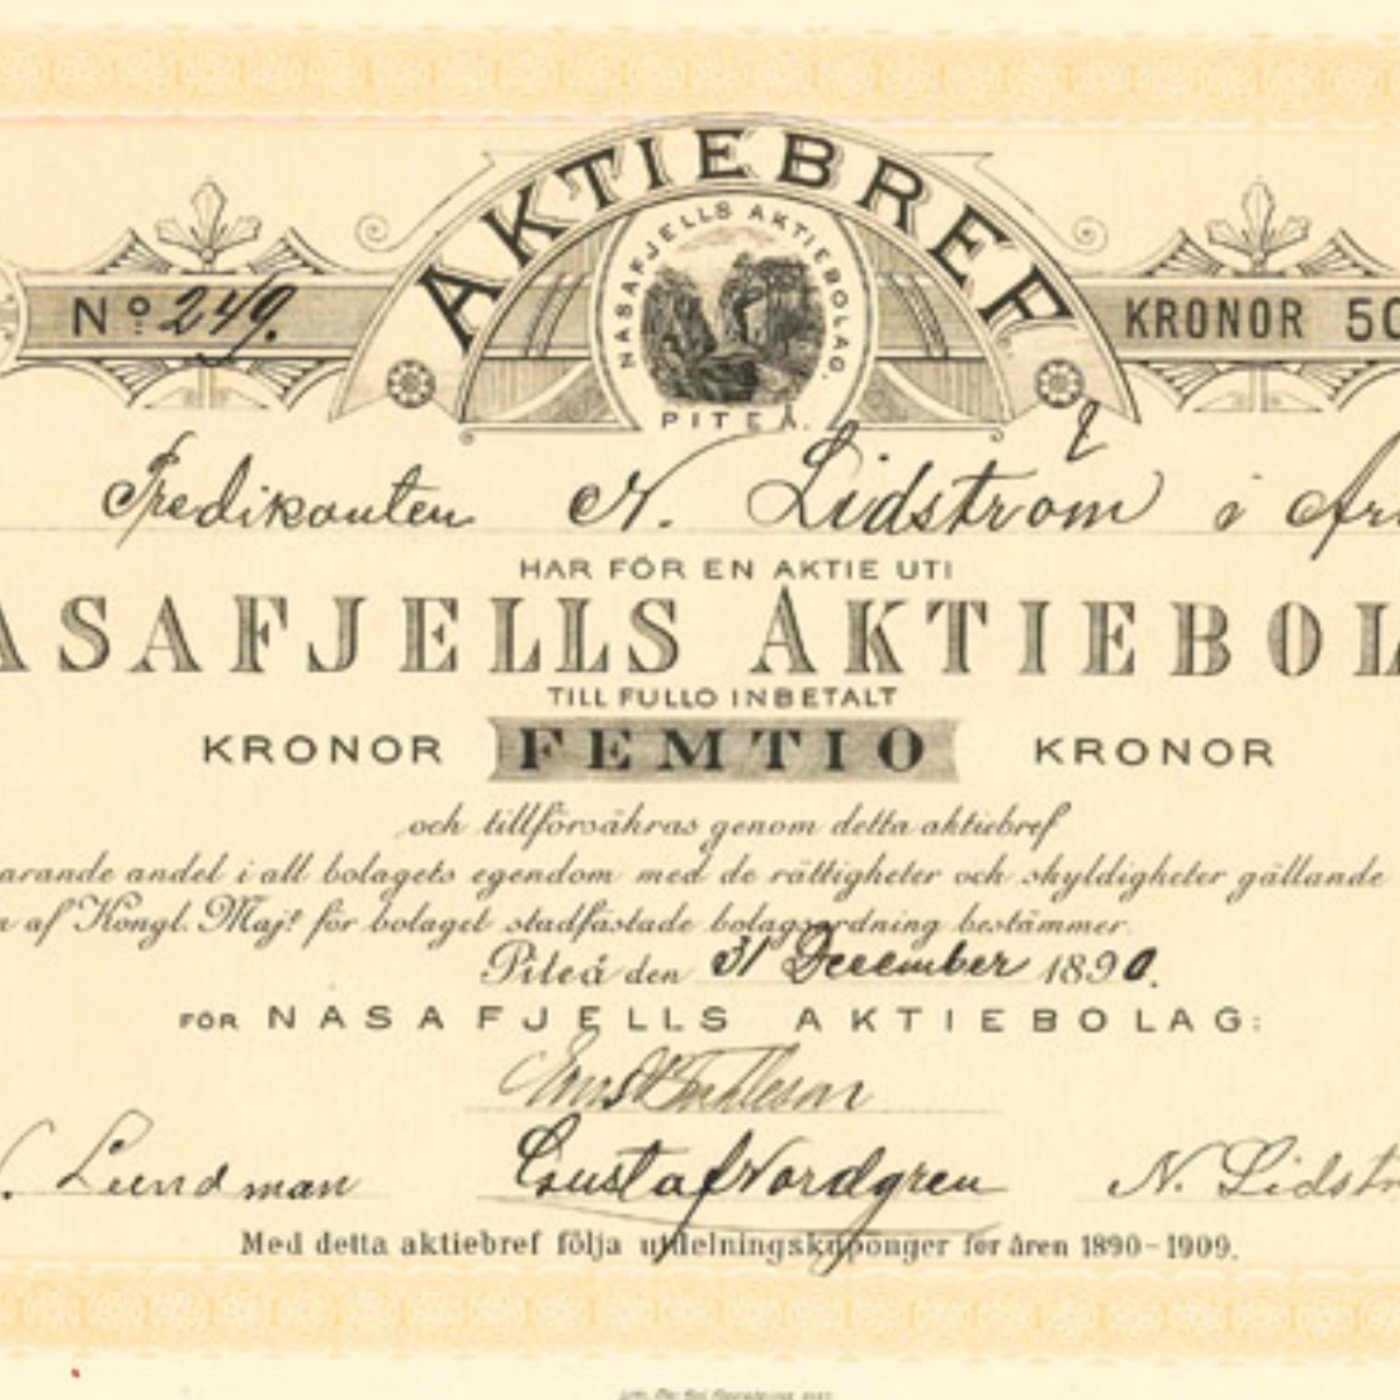 AKTIEBREF
Nº 249.
KRONOR 50
NASAFJELLS AKTIEBOLAG.
PITEÅ.
Predikanten N. Lidström i
HAR FÖR EN AKTIE UTI
ASAFJELLS AKTIEBOL
TILL FULLO INBETALT
KRONOR FEMTIO KRONOR
och tillförsäkras genom detta aktiebref
arande andel i all bolagets egendom med de rättigheter och skyldigheter gällande
af Kongl. Maj:t för bolaget stadfästade bolagsordning bestämmer.
Piteå den 31 December 1890.
FÖR NASAFJELLS AKTIEBOLAG:
Lundman Gustaf Nordgren N. Lidstr
Med detta aktiebref följa utdelningskuponger för åren 1890-1909.